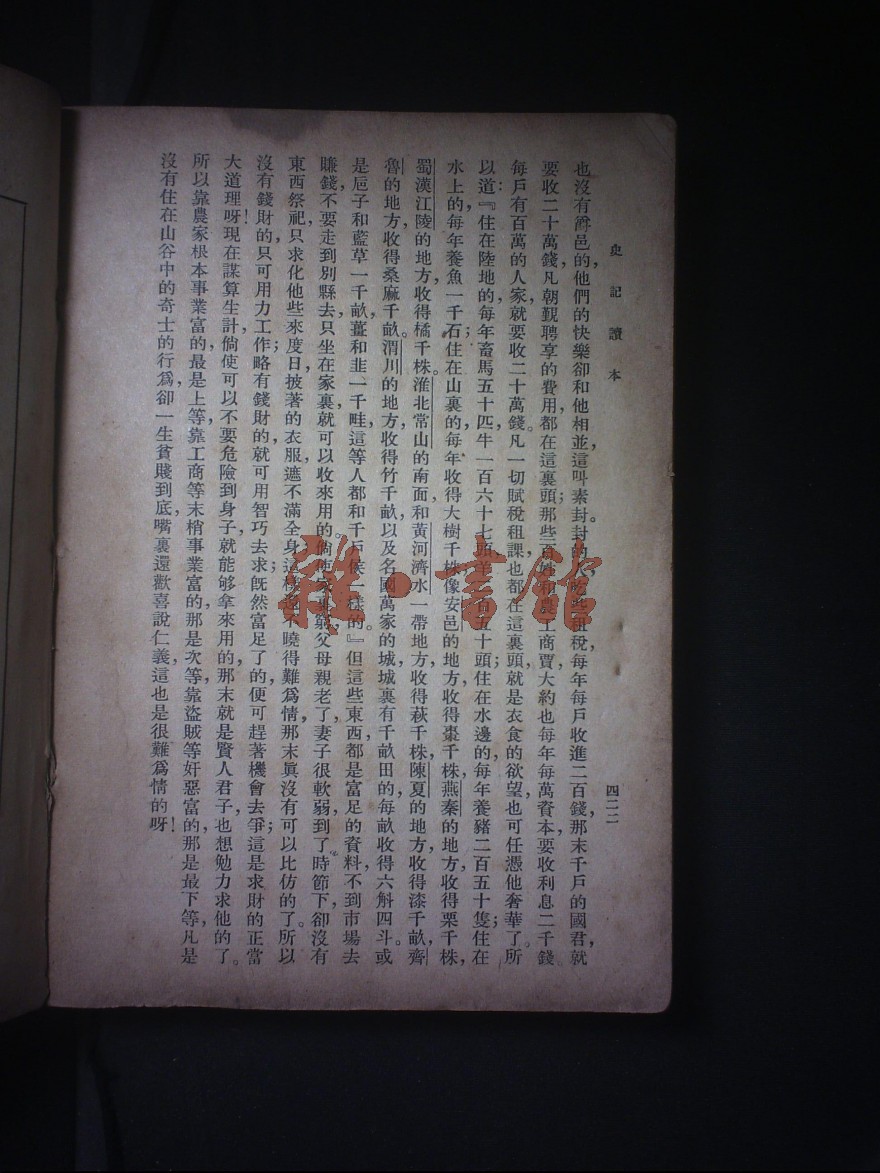 史記讀本
四二二
也沒有爵邑的他們的快樂卻和他相並這叫素封。封的人吃些租稅每年每戶收進二百錢那末千戶的國君就
要收二十萬錢凡朝覲聘享的費用都在這裏頭那些百姓和農工商賈大約也每年每萬資本要收利息二千錢
每戶有百萬的人家就要收二十萬錢。凡一切賦稅租課也都在這裏頭就是衣食的欲望也可任憑他奢華了。所
以道『住在陸地的每年畜馬五十匹牛一百六十七頭羊二百五十頭住在水邊的每年養豬二百五十隻住在
水上的每年養魚一千石住在山裏的每年收得大樹千株像安邑的地方收得棗千株燕秦的地方收得栗千株
蜀漢江陵的地方收得橘千株。淮北常山的南面和黃河濟水一帶地方收得萩千株陳夏的地方收得漆千畝齊
魯的地方收得桑麻千畝。渭川的地方收得竹千畝以及名國萬家的城城裏有千畝田的每畝收得六斛四斗。或
是巵子和藍草一千畝薑和韭一千畦這等人都和千戶侯一樣的。』但這些東西都是富足的資料不到市場去
賺錢不要走到別縣去只坐在家裏就可以收來用的倘使家裏窮父母親老了妻子很軟弱到了時節下卻沒有
東西祭祀只求化他些來度日披著的衣服遮不滿全身這樣還不曉得難爲情那末眞沒有可以比仿的了。所以
沒有錢財的只可用力工作略有錢財的就可用智巧去求旣然富足了的便可趕著機會去爭這是求財的正當
大道理呀！現在謀算生計倘使可以不要危險到身子就能够拿來用的那末就是賢人君子也想勉力求他的了。
所以靠農家根本事業富的最是上等靠工商等末梢事業富的那是次等靠盜賊等奸惡富的那是最下等凡是
沒有住在山谷中的奇士的行爲卻一生貧賤到底嘴裏還歡喜說仁義這也是很難爲情的呀！
雅·書館